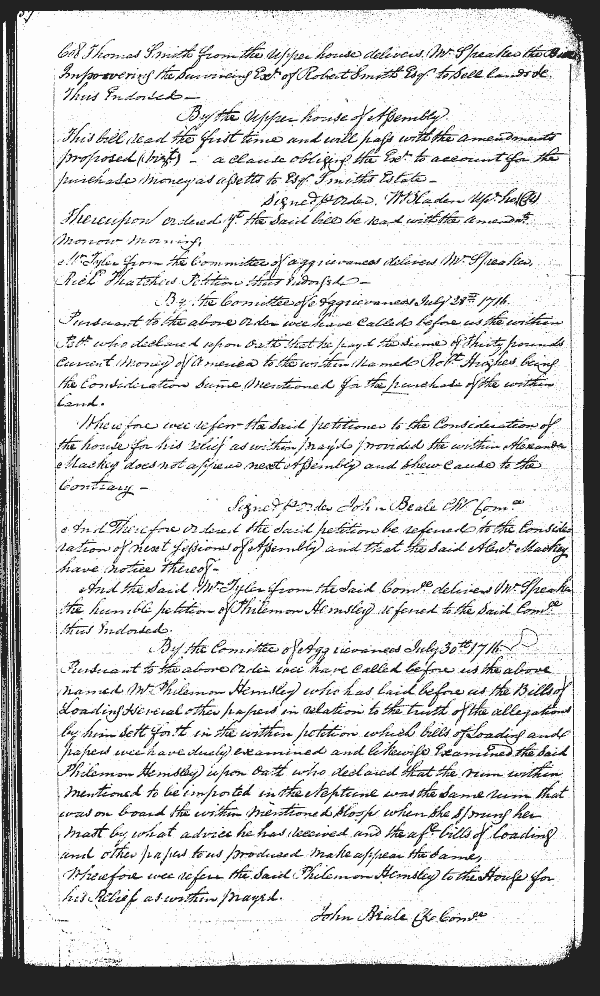 Col Thomas Smith from the upper house delivers Mr Speaker the Bill
Impowering the Surviving Exr of Robert Smith Esqr to Sell lands &c
thus Endorsed —
By the upper house of Assembly
This bill read the first time and will pass with the amendments
proposed (vizt) — a clause obliging the Exr to account for the
purchase money as assetts to Esqr Smiths Estate —
Signed p order. W Bladen
Thereupon ordered yt the Said bill be read with the amendts
morrow morning,
Mr Tyler from the Committee of aggrievances delivers Mr Speaker,
Richd Thatchers Petition thus endorsed —
By the Comittee of Aggrievances July 28th 1716.
Pursuant to the above order wee have called before us the within
Petr who declared upon oath that he payd the Sume of thirty pounds
current money of America to the within named Robt Hughes being
the Consideration Sume mentioned for the purchase of the within
land.
Wherefore wee referr the Said petitioner to the Consideration of
the house for his relief as within prayd provided the within Alexander
Mackey does not appear next Assembly and Shew Cause to the
Contrary —
Signed p order John Beale Com
And Therefore ordered the Said petition be referred to the Conside
ration of next Sessions of Assembly and that the Said Alexr Mackey
have notice thereof —
And the Said Mr Tyler from the Said Comee delivers Mr Speaker
the humble petition of Philemon Hemsley referred to the Said Comee
thus Endorsed.
By the Comittee of Aggrievances July 30th 1716
Pursuant to the above order wee have Called before us the above
named Mr Philemon Hemsley who has laid before us the Bills of
Loading & Several other papers in relation to the truth of the allegations
by him Sett forth in the within petition which bills of loading and
papers wee have duely examined and likewise Examined the Said
Philemon Hemsley upon oath who declared that the rum within
mentioned to be imported in the Neptune was the Same rum that
was on board the within mentioned Sloop when She Sprung her
mast by what advice he has received and the afd bills of loading
and other papers to us produced make appear the Same,
Wherefore wee referr the Said Philemon Hemsley to the House for
his Relief as within prayed.
John Beale Clo Comee